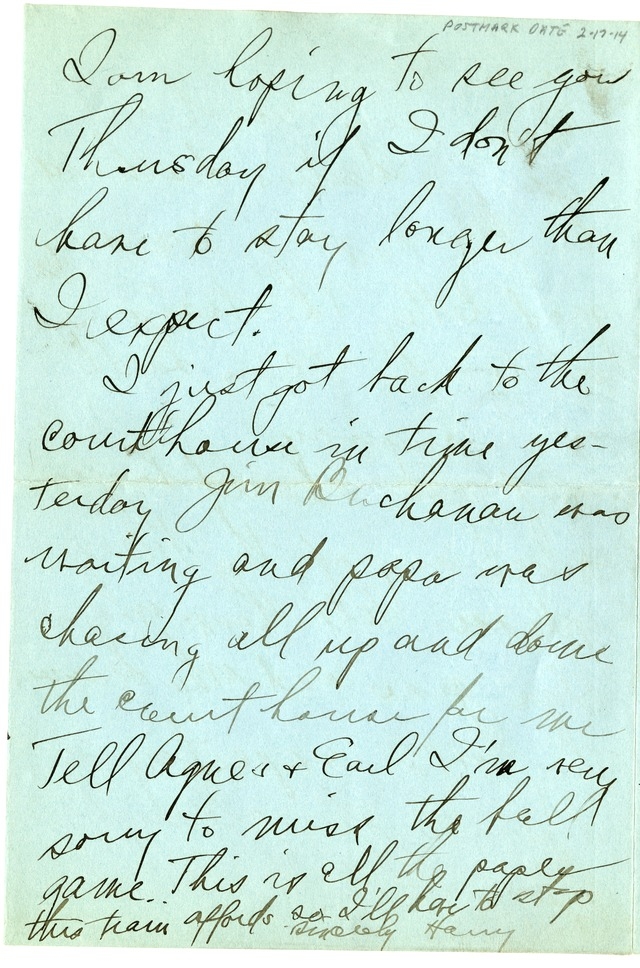 POSTMARK DATE 2-17-14
I am hoping to see you
Thursday if I don't
have to stay longer than
I expect.
I just got back to the
courthouse in time yes-
terday Jim Buchanan was
waiting and papa was
chasing all up and down
the court house for me
Tell Agnes & Earl I'm very
sorry to miss the ball
game. This is all the paper
this train affords so I'll have to stop
Sincerely Harry